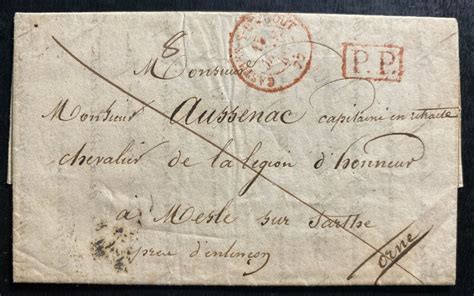 P.P.
Monsieur
Monsieur Aussenac capitaine en retraite
chevalier de la legion d'honneur
a Mesle sur Sarthe
pres d'enlençon
orne